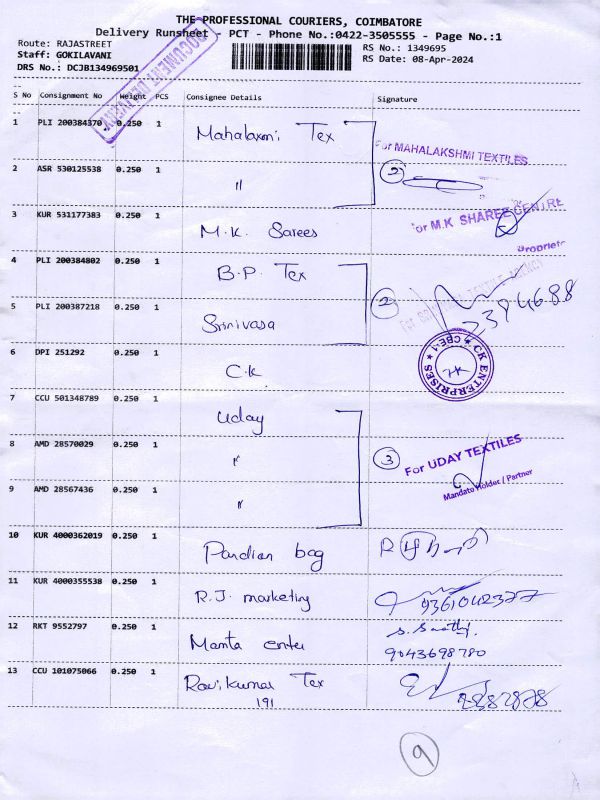 THE PROFESSIONAL COURIERS, COIMBATORE
Delivery Runsheet - PCT - Phone No.:0422-3505555 - Page No.:1
Route: RAJASTREET
Staff: GOKILAVANI
DRS No.: DCJB134969501
RS No.: 1349695
RS Date: 08-Apr-2024
DOCUMENT
S No Consignment No Weight PCS Consignee Details Signature
1 PLI 200384370 0.250 1 Mahalaxmi Tex
For MAHALAKSHMI TEXTILES
2 ASR 530125538 0.250 1 "
2
3 KUR 531177383 0.250 1 M.K. Sarees
For M.K SHAREE CENTRE
Proprietor
4 PLI 200384802 0.250 1 B.P. Tex
2
5 PLI 200387218 0.250 1 Srinivasa
2384688
6 DPI 251292 0.250 1 C.K.
CK ENTERPRISES ★ CBE-1 ★
7 CCU 501348789 0.250 1 Uday
8 AMD 28570029 0.250 1 "
3 For UDAY TEXTILES
Mandate Holder / Partner
9 AMD 28567436 0.250 1 "
10 KUR 4000362019 0.250 1 Pandian bag
11 KUR 4000355538 0.250 1 R.J. marketing
9361042377
12 RKT 9552797 0.250 1 Mamta enter
9043698780
13 CCU 101075066 0.250 1 Ravikumar Tex
191
9